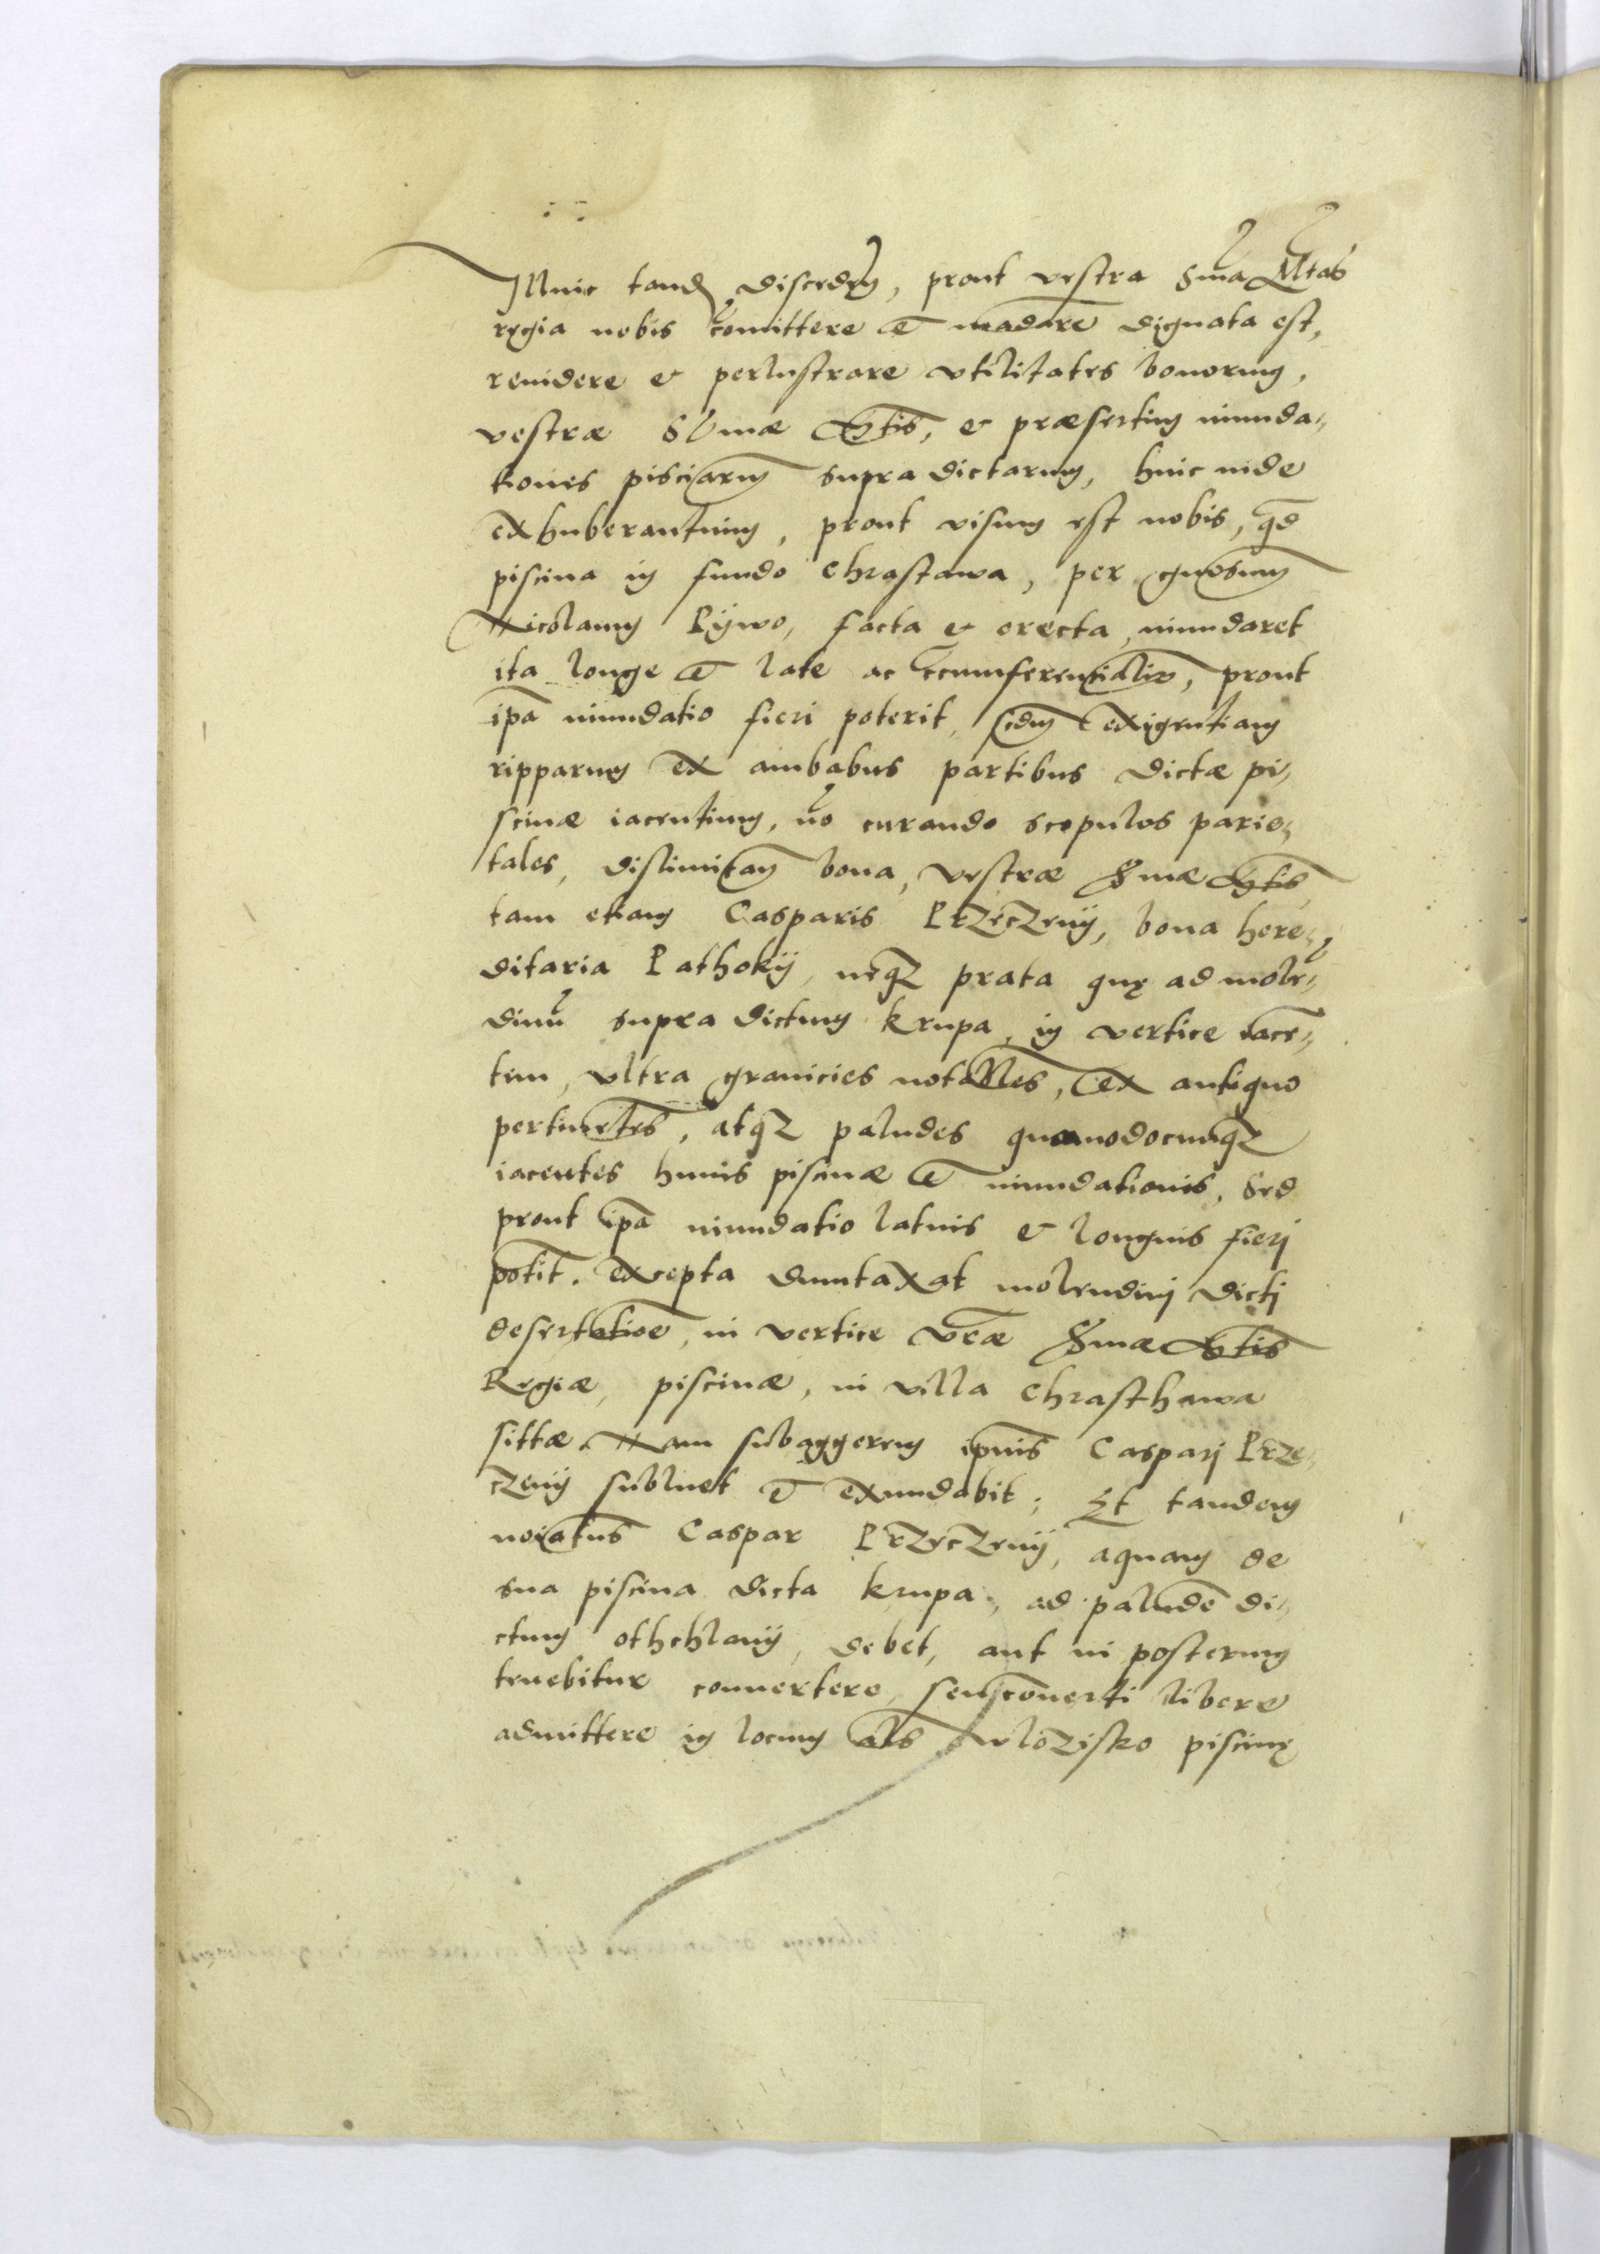 Illuic tand discedn, prout vestra Sma Mtas
regia nobis comittere et madare dignata est,
reuidere & perlustrare vtilitates bonorum,
vestræ S mæ Mtis, & præsertim inunda-
tiones pisciarum supra dictarum, huic inde
exhuberantium, prout visum est nobis, qd
piscina in fundo Chrastawa, per gnosum
Nicolaum Pywo, facta & erecta inundaret
ita longe et late ac circumferencialiter, prout
ipa inundatio fieri poterit, scdm exigentiam
ripparum ex ambabus partibus dictæ pi-
scinæ iacentium, no curando scopulos parie-
tales, distimitan bona, vestræ Smæ Mtis
tam etiam Casparis Przeczeny, bona here-
ditaria Pathoky, neqz prata quę ad mole-
dinu supra dictum Krupa, in vertice iace-
tem, vltra granicies notabiles, ex antiquo
pertinetes, atqz paludes quomodocunqz
iacentes huius piscinæ et inundationis, Sed
prout ipa inundatio latius & longius fieri
potit. excepta duntaxat molendini dicti
desertatioe, in vertice vræ Smæ Mtis
Regiæ, piscinæ, in villa Chrasthawa
sittæ. Nam subaggerem ipius Caspari Prze-
czeny subluet et exundabit; Et tandem
noiatus Caspar Przeczeny, aquam de
sua piscina dicta Krupa, ad palude di-
ctum othchlany, debet, aut in posterum
tenebitur conuertere, seu conuerti libere
admittere in locum als wlozisko piscinę